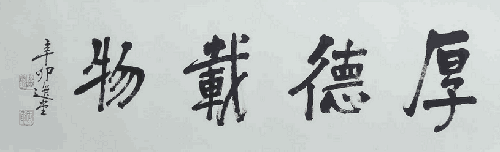 厚德載物
辛卯